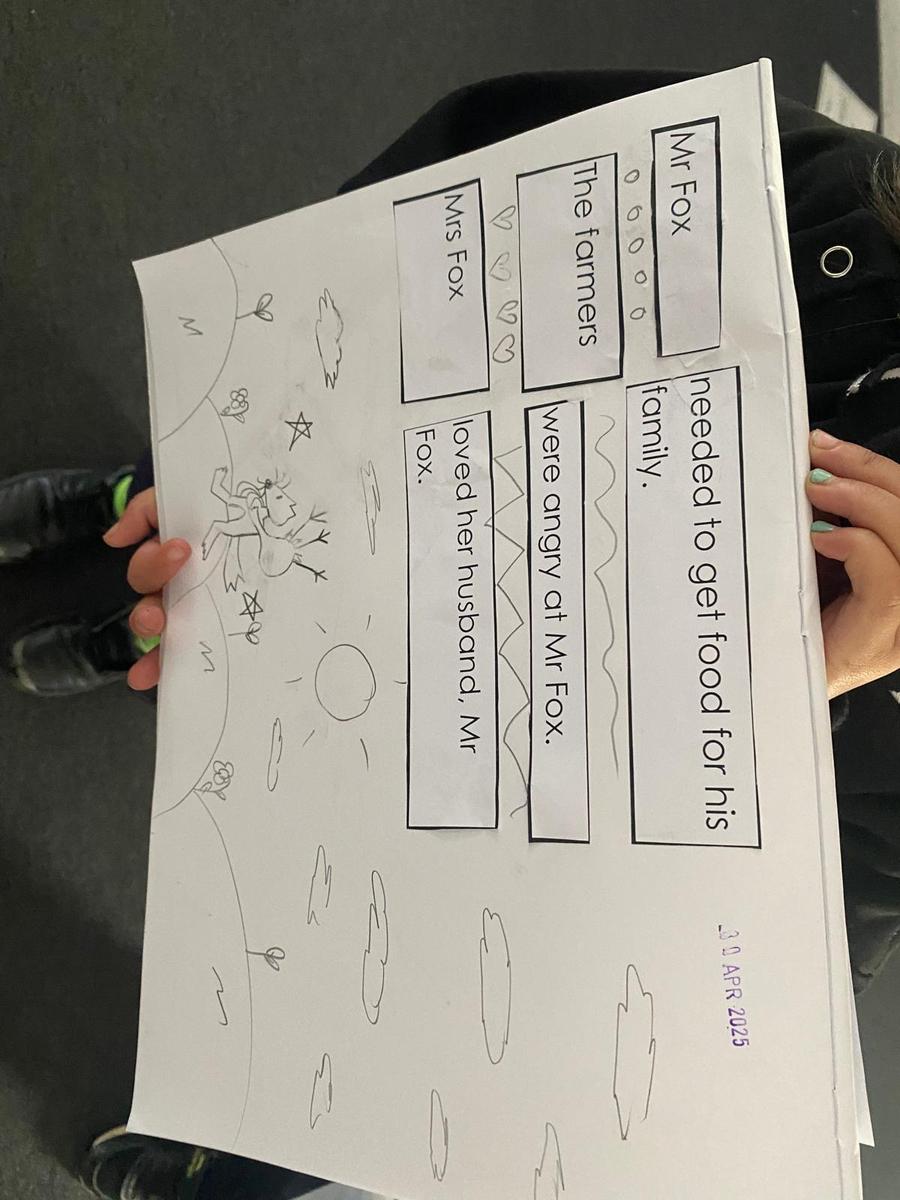 30 APR 2025
Mr Fox
needed to get food for his
family.
The farmers
were angry at Mr Fox.
Mrs Fox
loved her husband, Mr
Fox.